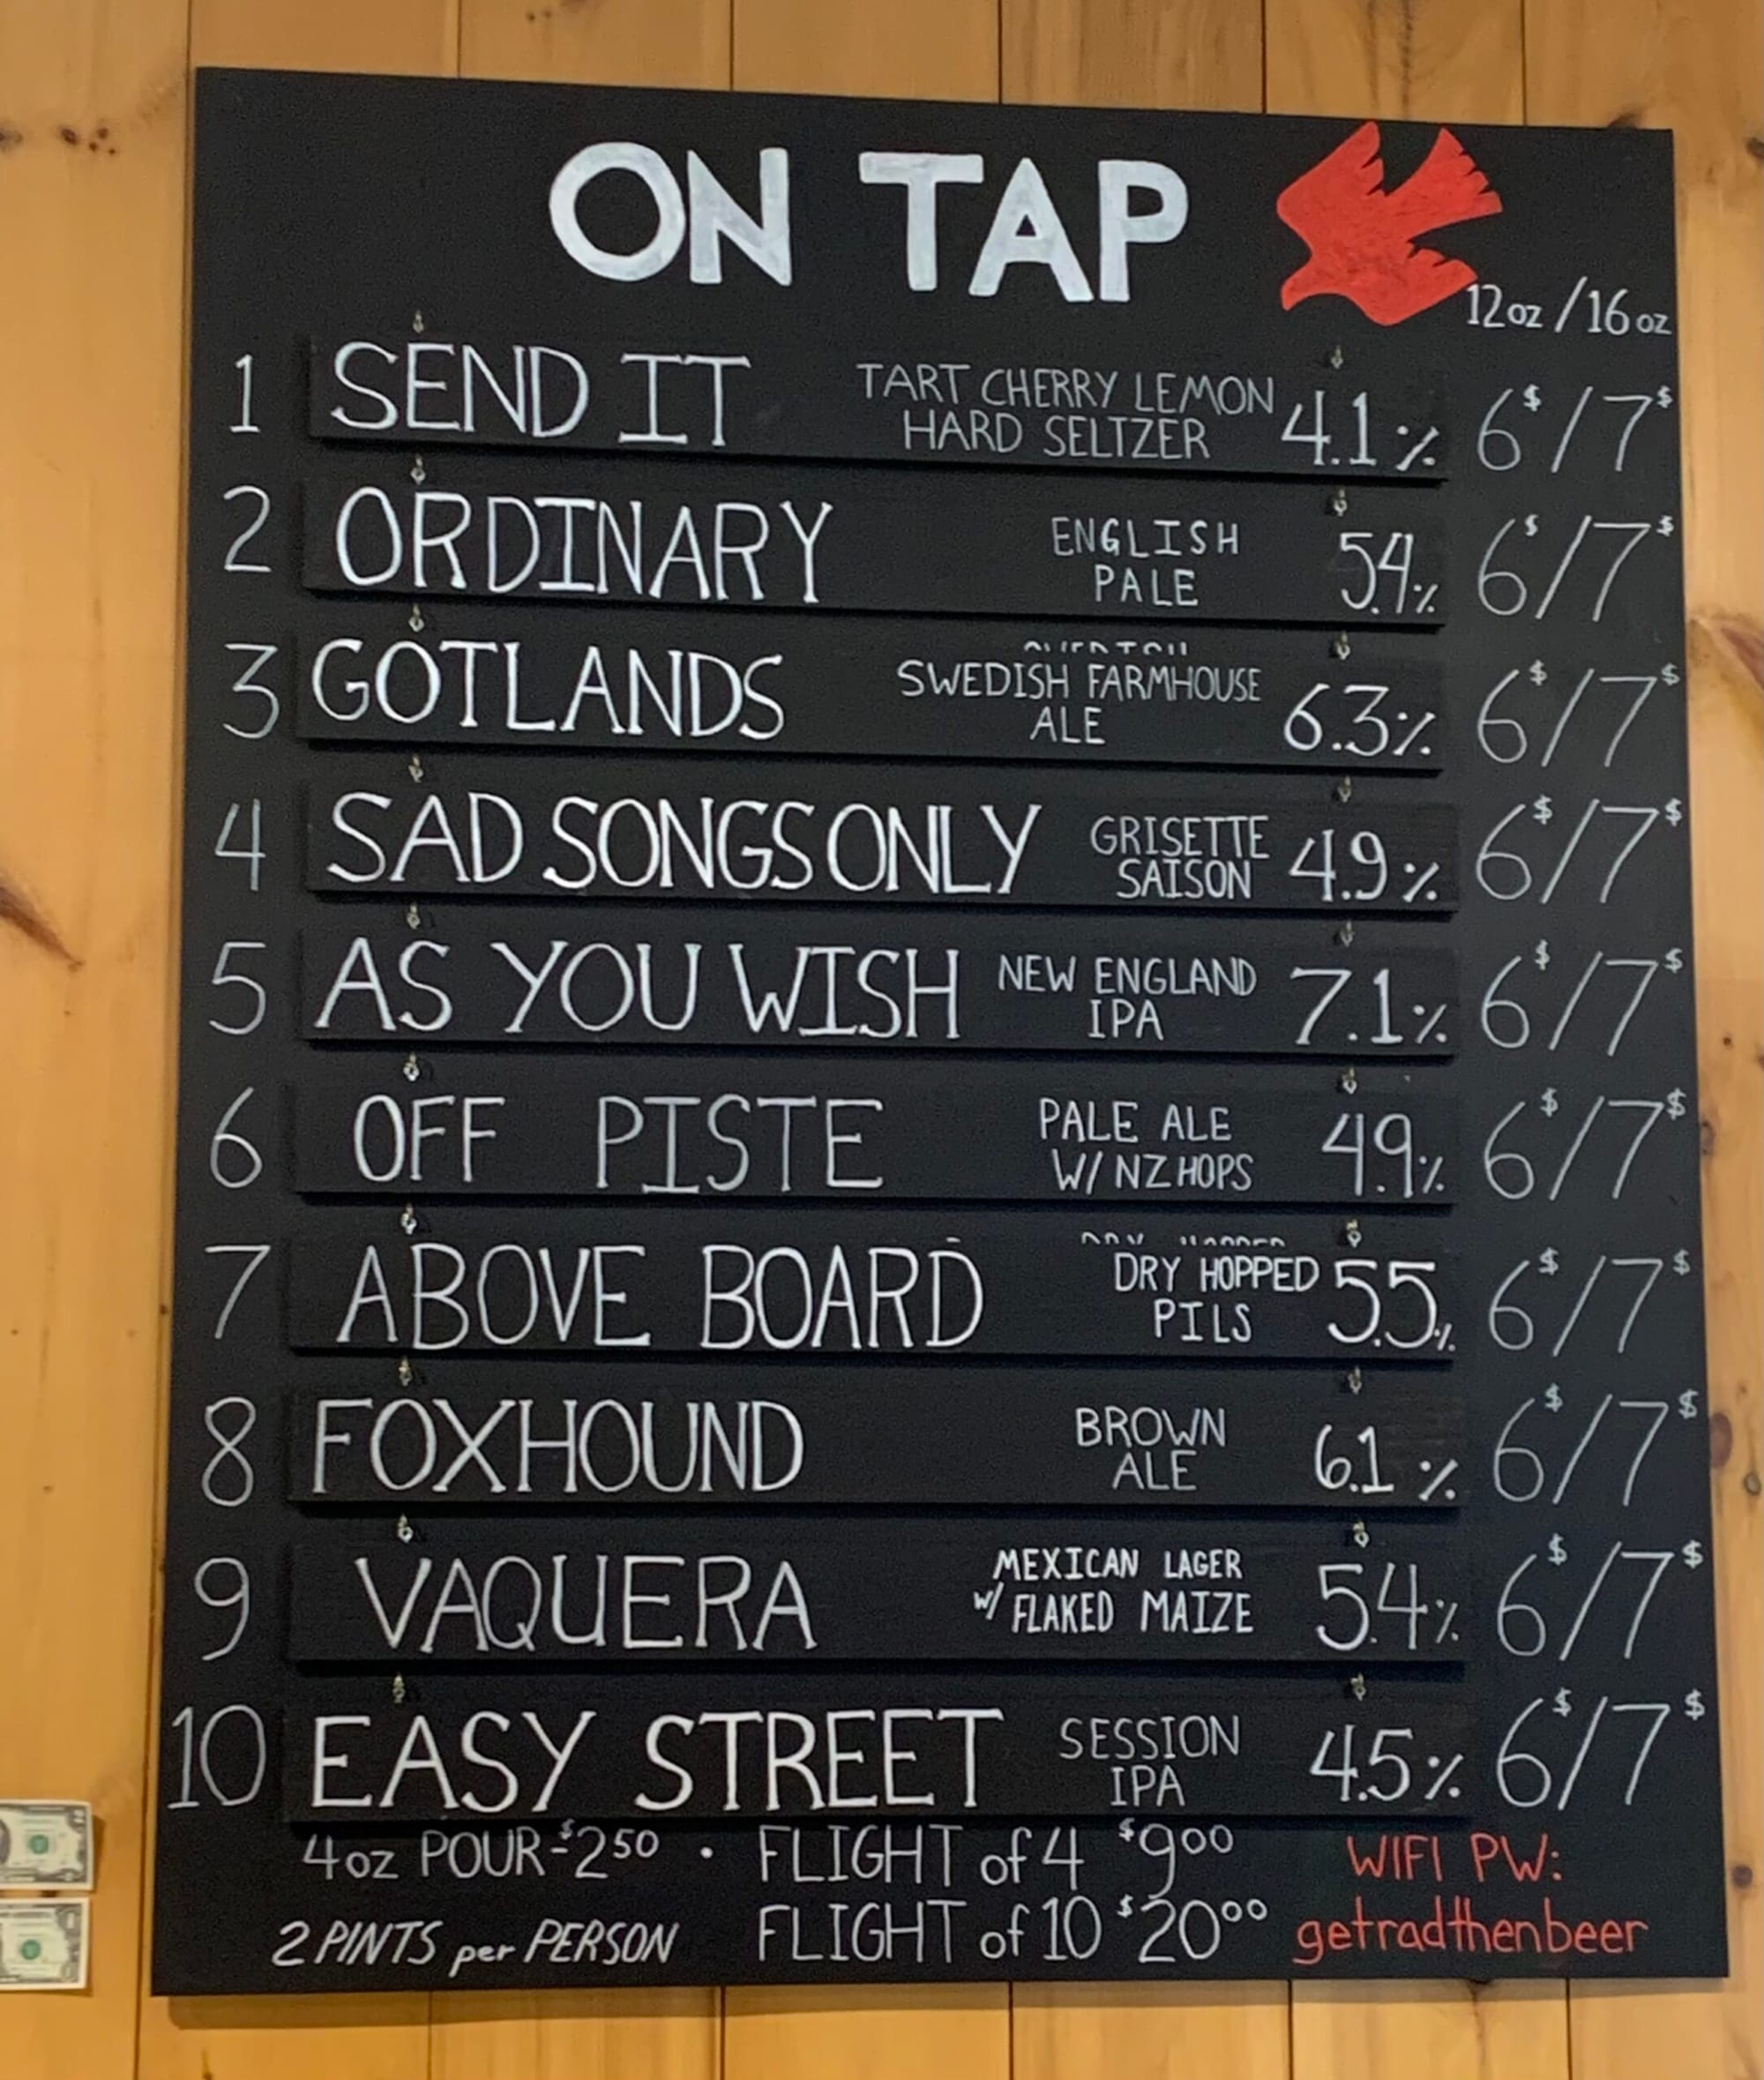 ON TAP
12oz / 16oz
1 SEND IT TART CHERRY LEMON HARD SELTZER 4.1% 6$/7$
2 ORDINARY ENGLISH PALE 5.4% 6$/7$
3 GOTLANDS SWEDISH FARMHOUSE ALE 6.3% 6$/7$
4 SAD SONGS ONLY GRISETTE SAISON 4.9% 6$/7$
5 AS YOU WISH NEW ENGLAND IPA 7.1% 6$/7$
6 OFF PISTE PALE ALE W/ NZ HOPS 4.9% 6$/7$
7 ABOVE BOARD DRY HOPPED PILS 5.5% 6$/7$
8 FOXHOUND BROWN ALE 6.1% 6$/7$
9 VAQUERA MEXICAN LAGER W/ FLAKED MAIZE 5.4% 6$/7$
10 EASY STREET SESSION IPA 4.5% 6$/7$
4oz POUR-$250 · FLIGHT of 4 $900
2 PINTS per PERSON FLIGHT of 10 $2000
WIFI PW:
getradthenbeer